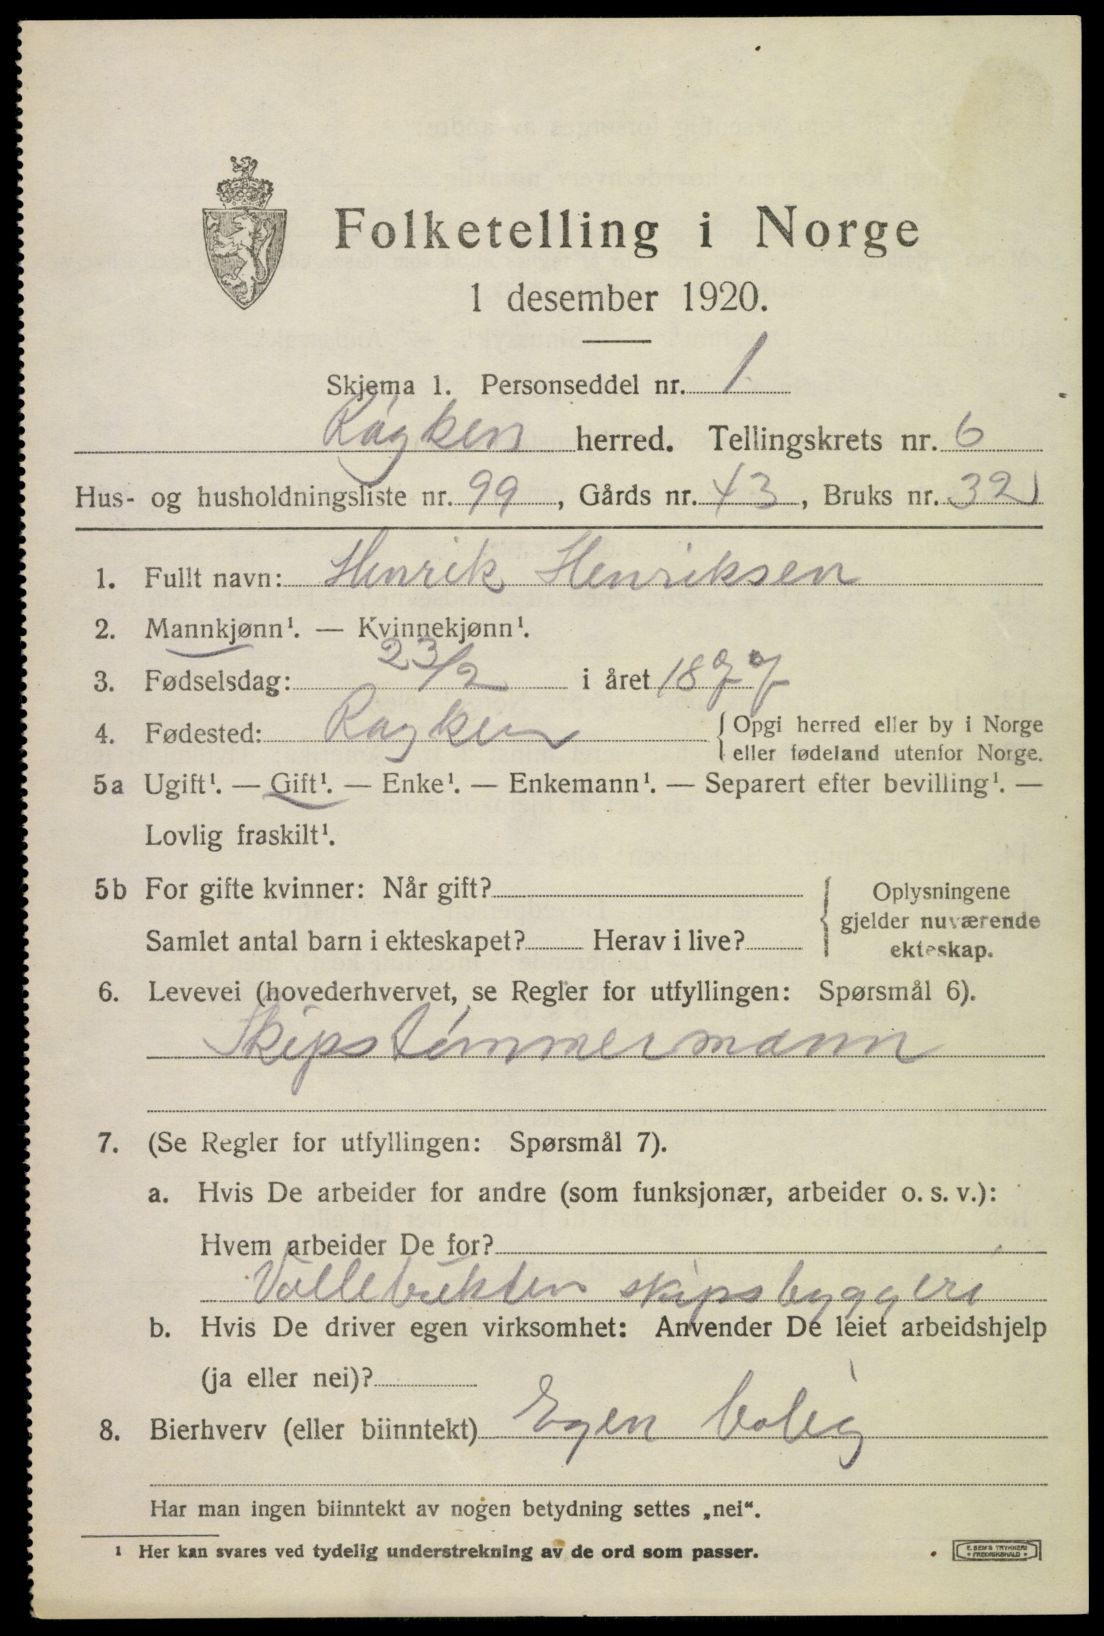 Folketelling i Norge
1 desember 1920.
Skjema 1. Personseddel nr. 1
Røyken herred. Tellingskrets nr. 6
Hus- og husholdningsliste nr. 99, Gårds nr. 43, Bruks nr. 32
1. Fullt navn: Henrik Henriksen
2. Mannkjønn¹. — Kvinnekjønn¹.
3. Fødselsdag: 23/2 i året 1877
4. Fødested: Røyken { Opgi herred eller by i Norge
eller fødeland utenfor Norge.
5a Ugift¹. — Gift¹. — Enke¹. — Enkemann¹. — Separert efter bevilling¹. —
Lovlig fraskilt¹.
5b For gifte kvinner: Når gift? { Oplysningene
gjelder nuværende
Samlet antal barn i ekteskapet? Herav i live? ekteskap.
6. Levevei (hovederhvervet, se Regler for utfyllingen: Spørsmål 6).
Skipstømmermann
7. (Se Regler for utfyllingen: Spørsmål 7).
a. Hvis De arbeider for andre (som funksjonær, arbeider o. s. v.):
Hvem arbeider De for?
Vollebukten skipsbyggeri
b. Hvis De driver egen virksomhet: Anvender De leiet arbeidshjelp
(ja eller nei)?
8. Bierhverv (eller biinntekt) Egen bolig
Har man ingen biinntekt av nogen betydning settes „nei“.
¹ Her kan svares ved tydelig understrekning av de ord som passer.